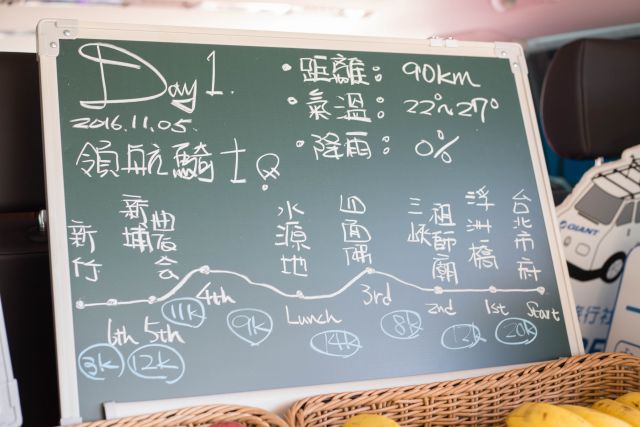 Day 1.
2016.11.05.
領航騎士
・距離： 90km
・氣溫： 22°~27°
・降雨： 0%
新竹
新埔
農會
水源地
四面關
三峽
祖師廟
浮洲橋
台北市府
6th
5th
4th
Lunch
3rd
2nd
1st
Start
3k
12k
11k
9k
14k
8k
12k
20k
GIANT
旅行社